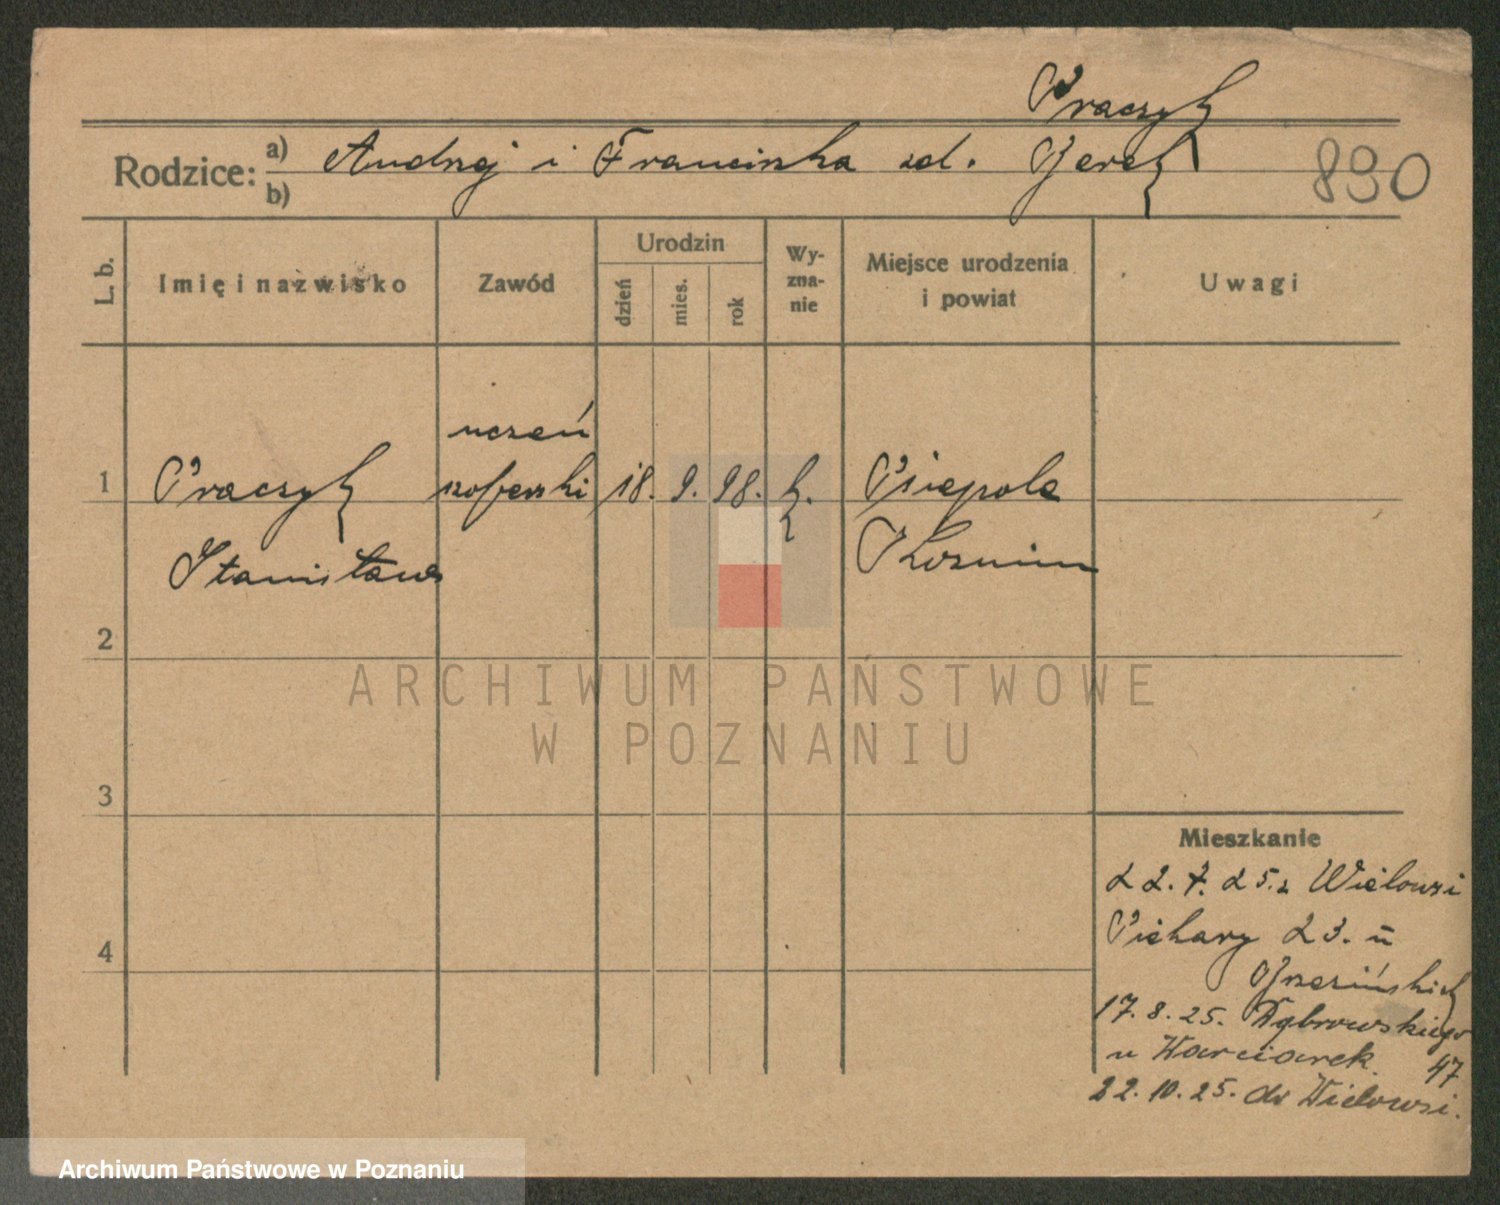 Praczyk
Rodzice: a) Andrzej i Franciszka zd. Jerch
b)
890
L. b. Imię i nazwisko Zawód Urodzin dzień mies. rok Wy-zna-nie Miejsce urodzenia i powiat Uwagi
uczeń
1 Praczyk szoferski 18. 9. 98. k. Psiepole
Stanisław Kozmin
2
ARCHIWUM PAŃSTWOWE
W POZNANIU
3
Mieszkanie
22. 7. 25. z Wielowsi
Piekary 23. u
4
17. 8. 25. Dąbrowskiego
u 47
22. 10. 25. do Wielowsi.
Archiwum Państwowe w Poznaniu